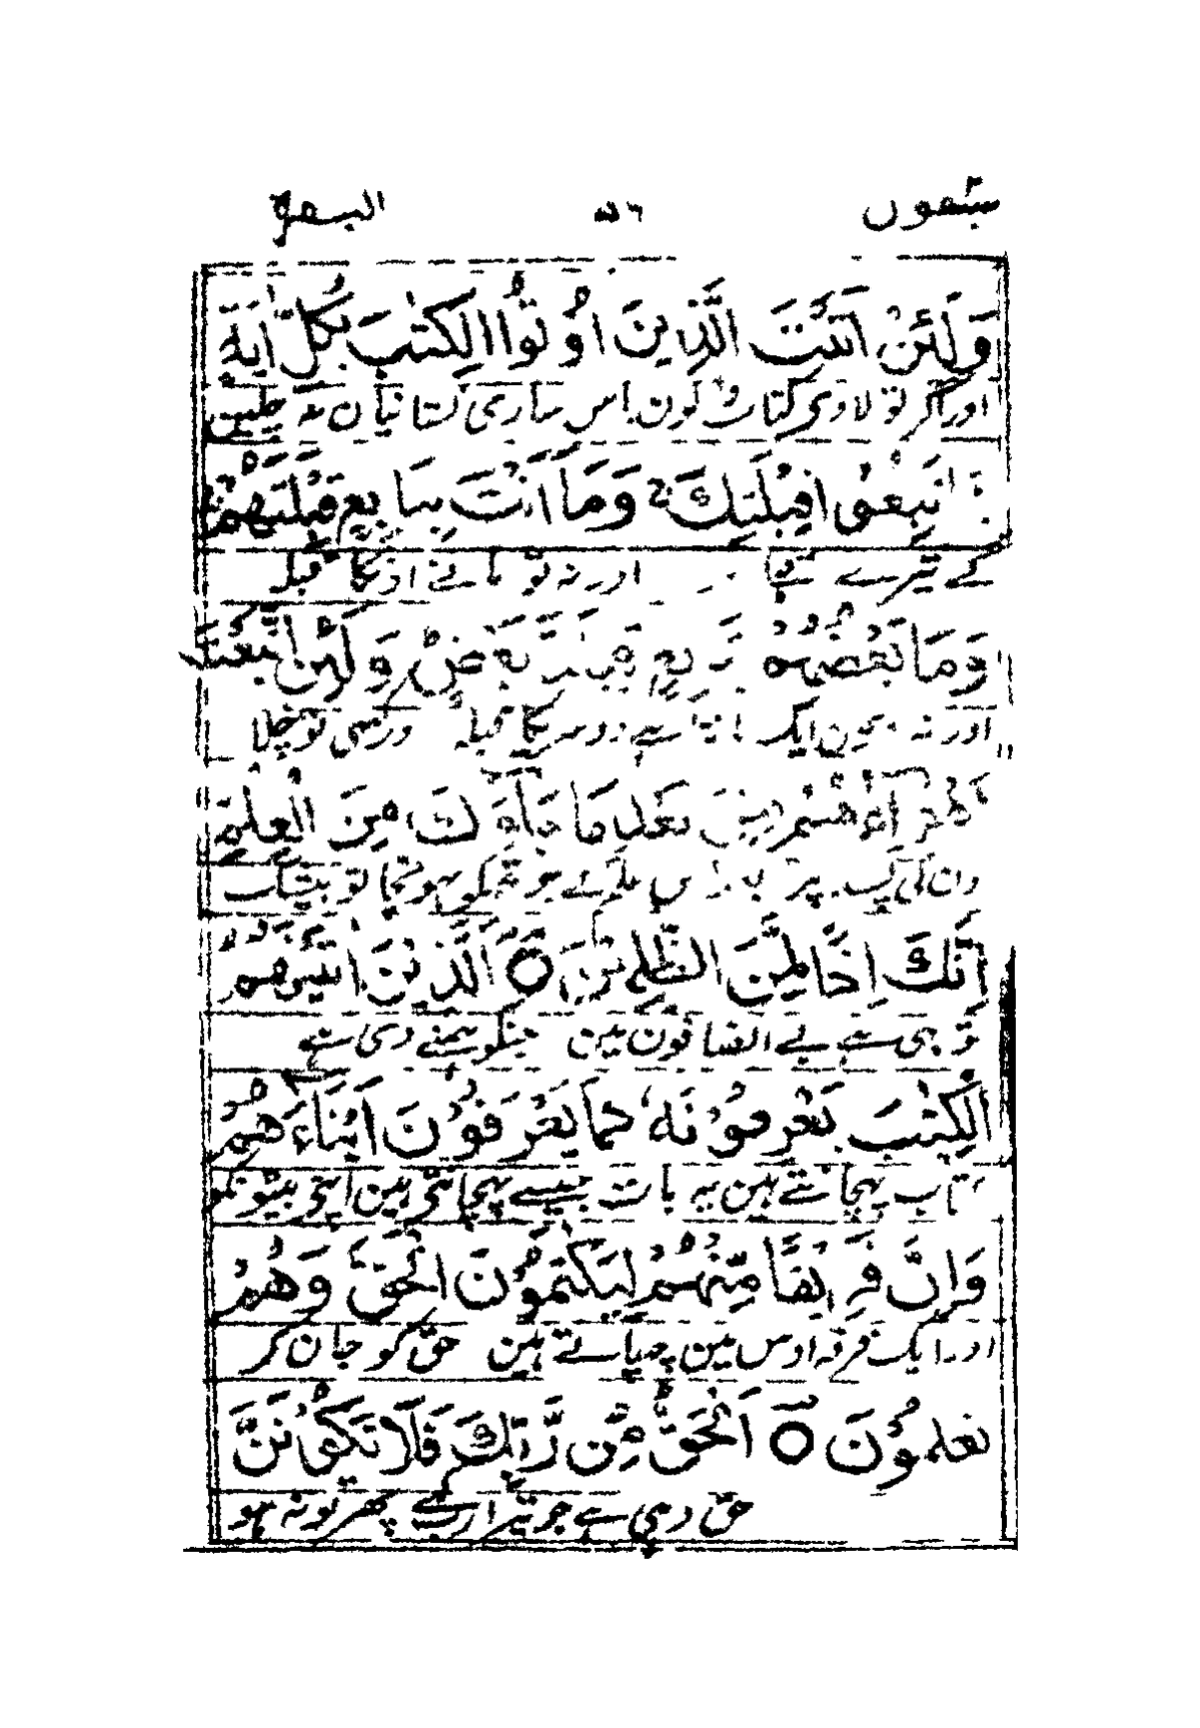 سیقول ۵۶ البقرة
وَلَئِنْ اَتَيْتَ الَّذِيْنَ اُوْتُوا الْكِتٰبَ بِكُلِّ اٰيَةٍ
اور اگر تو لاوی کتاب والون پاس ساری نشانیان نہ چلینگے
تَبِعُوْا قِبْلَتَكَ ۚ وَمَا اَنْتَ بِتَابِعٍ قِبْلَتَهُمْ
کے تیرے اور نہ تو مانے اونکا قبلہ
وَمَا بَعْضُهُمْ بِتَابِعٍ قِبْلَةَ بَعْضٍ وَلَئِنِ اتَّبَعْتَ
اور نہ اونمین ایک مانتا ہے دوسریکا قبلہ تو چلا
اَهْوَآءَهُمْ مِنْ بَعْدِ مَا جَآءَكَ مِنَ الْعِلْمِ
اون کی پر بعد اس علم کے جو تجھکو پہونچا تو بیشک
اِنَّكَ اِذًا لَمِنَ الظّٰلِمِيْنَ ○ اَلَّذِيْنَ اٰتَيْنٰهُمُ
تو بھی ہے بے انصافون مین جنکو ہمنے دی ہے
الْكِتٰبَ يَعْرِفُوْنَهٗ كَمَا يَعْرِفُوْنَ اَبْنَآءَهُمْ
کتاب پہچانتے ہین یہ بات جیسے پہچانتی ہین اپنی بیٹونکو
وَاِنَّ فَرِيْقًا مِّنْهُمْ لَيَكْتُمُوْنَ الْحَقَّ وَهُمْ
اور ایک فرقہ اونمین چھپاتے ہین حق کو جان کر
يَعْلَمُوْنَ ○ اَلْحَقُّ مِنْ رَّبِّكَ فَلَا تَكُوْنَنَّ
حق وہی ہے جو تیرا رب کہے پھر تو نہ ہو